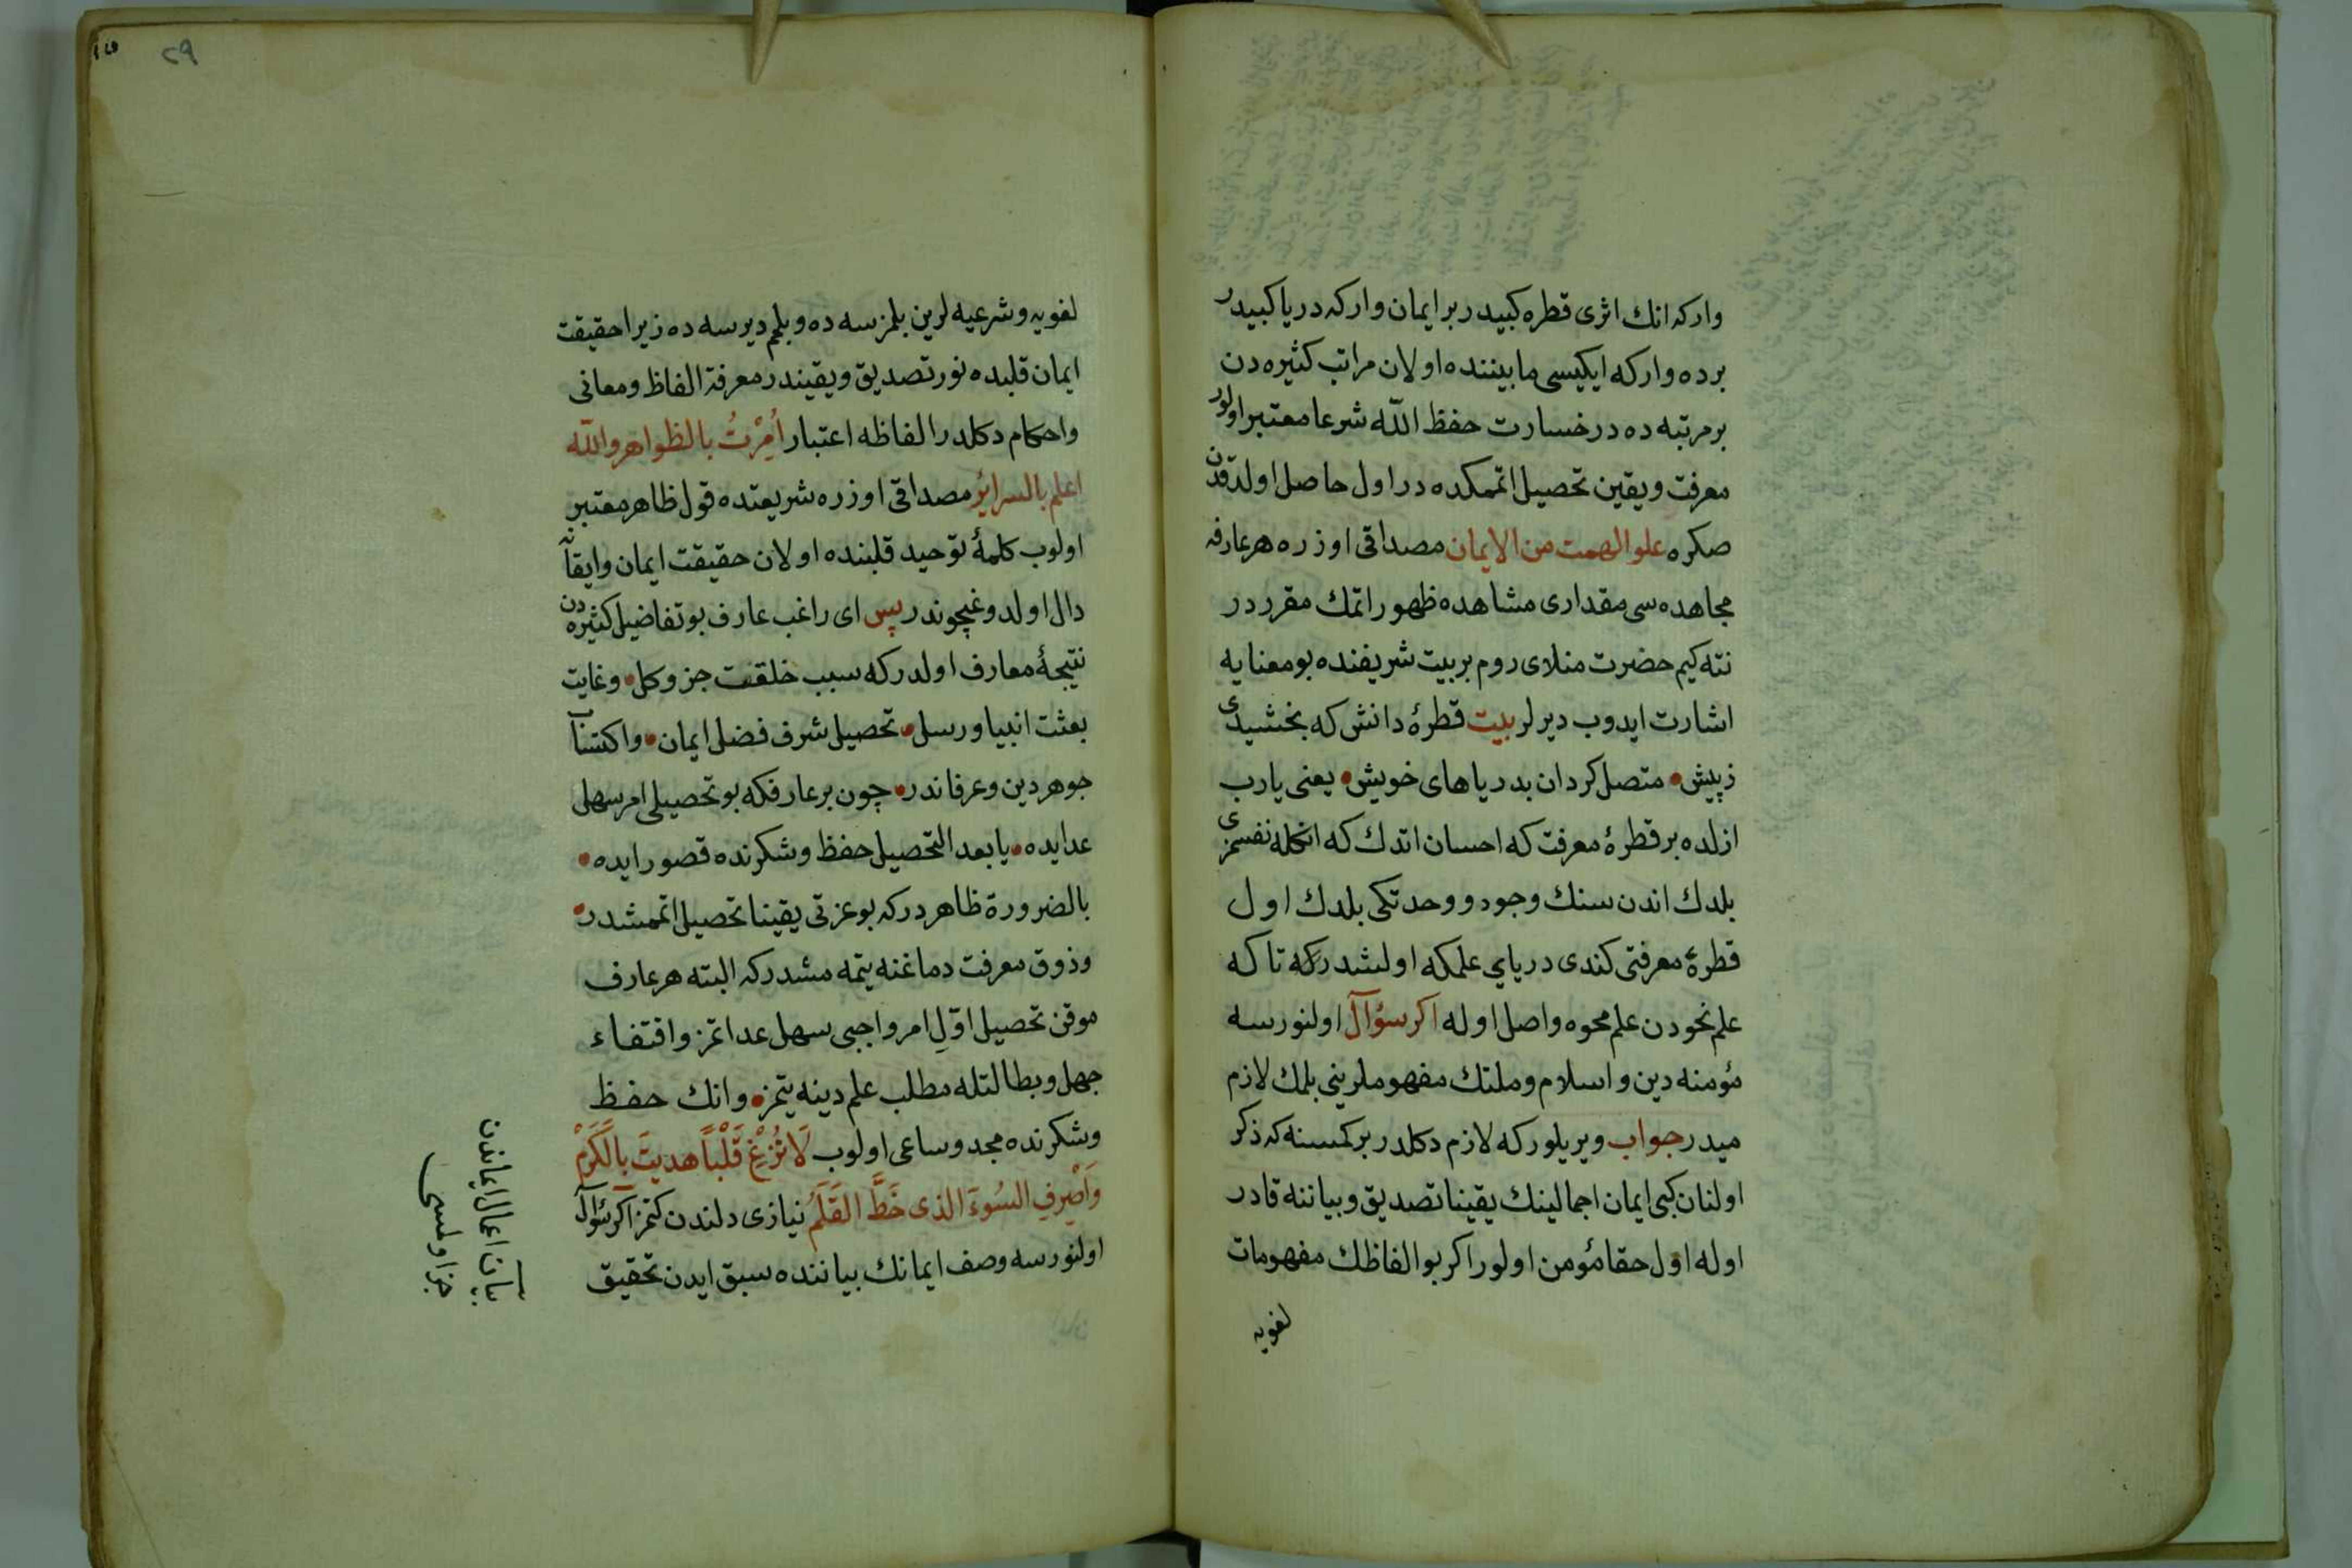 واركه انك اثرى قطره كبيدر بر ايمان واركه دريا كبيدر
برده واركه ايكيسى مابيننده اولان مراتب كثيره دن
بر مرتبه ده در خسارت حفظ الله شرعا معتبر اولور
معرفت ويقين تحصيل اتمكده در اول حاصل اولدقدن
صكره علو الهمت من الايمان مصداقى اوزره هر عارفه
مجاهده سى مقدارى مشاهده ظهور اتمك مقرردر
نته كيم حضرت منلاى روم بر بيت شريفنده بو معنايه
اشارت ايدوب ديرلر بيت قطرۀ دانش كه بخشيدى
زپيش • متصل كردان بدرياهاى خويش • يعنى يارب
ازلده بر قطرۀ معرفت كه احسان اتدك كه انكله نفسمزى
بلدك اندن سنك وجود ووحدتكى بلدك اول
قطرۀ معرفتى كندى درياي علمكه اولشدركه تا كه
علم نحودن علم محوه واصل اوله اكر سؤال اولنورسه
مؤمنه دين واسلام وملتك مفهوملرينى بلمك لازم
ميدر جواب ويريلوركه لازم دكلدر بر كمسنه كه ذكر
اولنان كبى ايمان اجمالينك يقينا تصديق وبياننه قادر
اوله اول حقا مؤمن اولور اكر بو الفاظك مفهومات
لغويه
٢٩
لغويه وشرعيه لرين بلمزسه ده وبلم ديرسه ده زيرا حقيقت
ايمان قلبده نور تصديق ويقيندر معرفة الفاظ ومعانى
واحكام دكلدر الفاظه اعتبار اُمِرْتُ بالظواهر والله
اعلم بالسرائر مصداقى اوزره شريعتده قول ظاهر معتبر
اولوب كلمۀ توحيد قلبنده اولان حقيقت ايمان وايقانه
دال اولدوغيچوندر پس اى راغب عارف بو تفاضيل كثيره دن
نتيجۀ معارف اولدركه سبب خلقت جز وكل • وغايت
بعثت انبيا ورسل • تحصيل شرف فضل ايمان • واكتساب
جوهر دين وعرفاندر • چون بر عارفكه بو تحصيلى امر سهل
عد ايده • يا بعد التحصيل حفظ وشكرنده قصور ايده •
بالضرورة ظاهر دركه بو عزتى يقينا تحصيل اتممشدر •
وذوق معرفت دماغنه يتمه مشدركه البته هر عارف
موقن تحصيل اوّلِ امر واجبى سهل عد اتمز واقتفاء
جهل وبطالتله مطلب علم دينه يتمز • وانك حفظ
وشكرنده مجد وساعى اولوب لَا تُزِغْ قَلْباً هديتَ بِالْكَرَمْ
وَاَصْرِفِ السُوءَ الذى خَطَّ القَلَمْ نيازى دلندن كتمز اكر سؤال
اولنورسه وصف ايمانك بياننده سبق ايدن تحقيق
بيان اعمال ايماندن
جز اولمسى